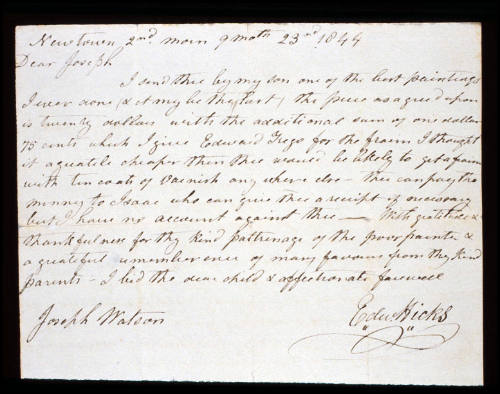 Newtown 2nd morn 9 moth 23rd 1844
Dear Joseph
I send thee by my son one of the best paintings
I ever done (& it my be the last) the price as agreed upon
is twenty dollars with the additional sum of one dollar
75 cents which I give Edward Trego for the frame I thought
it a gratile cheaper than thee would be likely to get a frame
with ten coats of varnish any where else — thee can pay the
money to Isaac who can give thee a receipt if necessary
but I have no account against thee — With gratitude &
thankfulness for thy kind pattrenage of the poor painter &
a grateful rememberence of many favours from thy kind
parents — I bid the dear child & affectionate farewell
Joseph Watson
Edw. Hicks